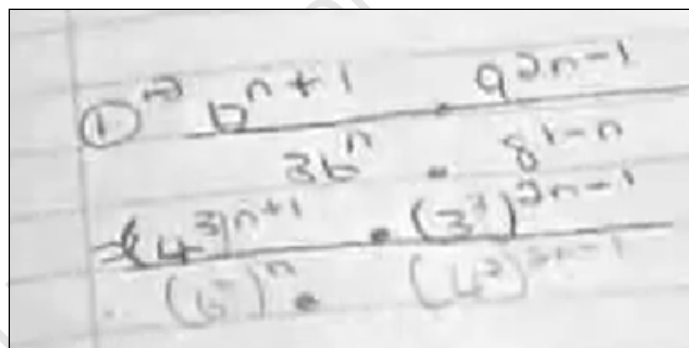 ① → 6^{n+1} · 9^{2n-1}
36^n · 8^{1-n}
(4^3)^{n+1} · (3^2)^{2n-1}
(6^2)^n · (4^2)^{2n-1}